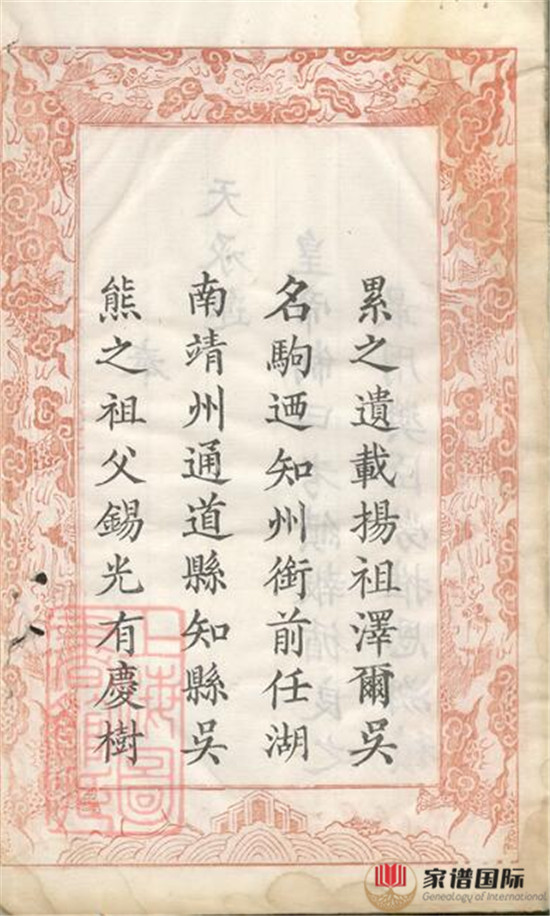 累之遺載揚祖澤爾吳
名駒迺知州銜前任湖
南靖州通道縣知縣吳
熊之祖父錫光有慶樹
上海圖
書館藏
家谱国际
Genealogy of International